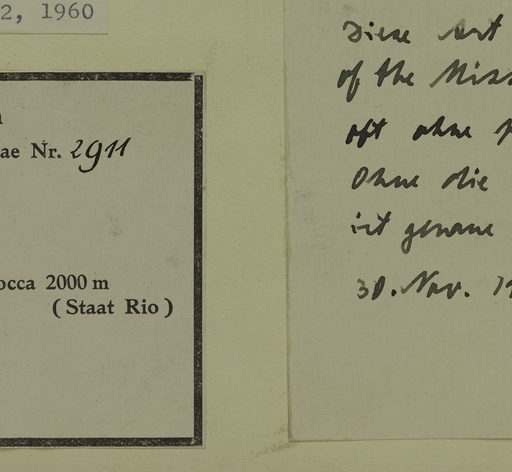 2, 1960
ae Nr. 2911
occa 2000 m
(Staat Rio)
Diese Art
of the Miss
oft ohne
Ohne die
ist genaue
30. Nov. 19